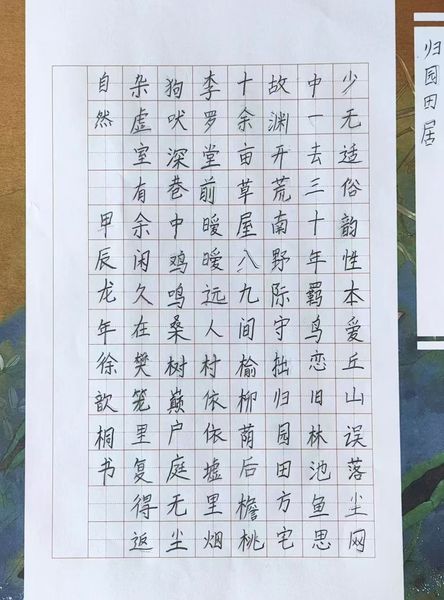 归园田居
少无适俗韵性本爱丘山误落尘网
中一去三十年羁鸟恋旧林池鱼思
故渊开荒南野际守拙归园田方宅
十余亩草屋八九间榆柳荫后檐桃
李罗堂前暧暧远人村依依墟里烟
狗吠深巷中鸡鸣桑树巅户庭无尘
杂虚室有余闲久在樊笼里复得返
自然 甲辰龙年徐歆桐书